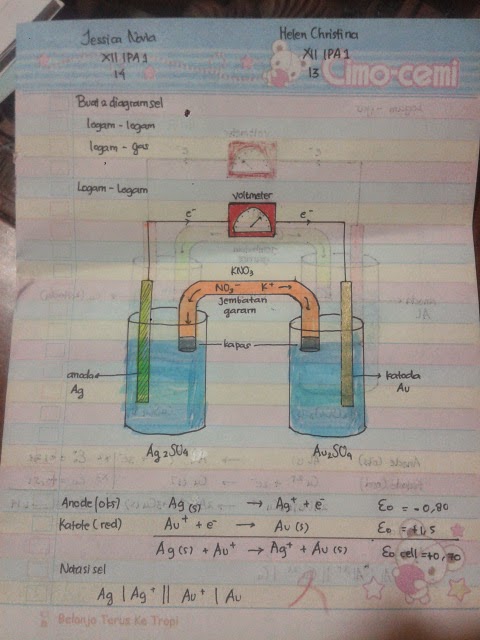 Jessica Novia
XII IPA 1
14
Helen Christina
XII IPA 1
13
Cimo-cemi
Buat 2 diagram sel
logam - logam
logam - gas
Logam - Logam
voltmeter
e⁻
e⁻
KNO₃
NO₃⁻ K⁺
jembatan
garam
kapas
anoda
Ag
katoda
Au
Ag₂SO₄
Au₂SO₄
Anode (oks) Ag (s) → Ag⁺ + e⁻ E₀ = -0,80
Katode (red) Au⁺ + e⁻ → Au (s) E₀ = +1,5
Ag (s) + Au⁺ → Ag⁺ + Au (s) E₀ cell = +0,70
Notasi sel
Ag | Ag⁺ || Au⁺ | Au
Belanja Terus Ke Tropi